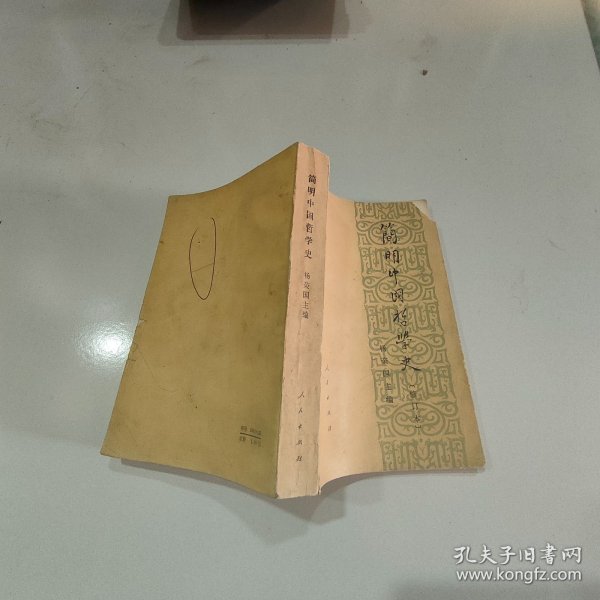 简明中国哲学史
杨荣国主编
人民出版社
简明中国哲学史
(修订本)
杨荣国主编
人民出版社
孔夫子旧书网
www.kongfz.com